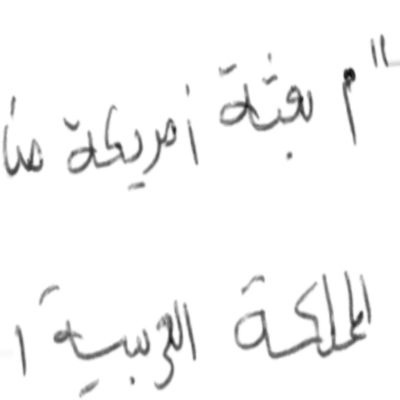 "م بعثة أمريكة من
المملكة العربية ا